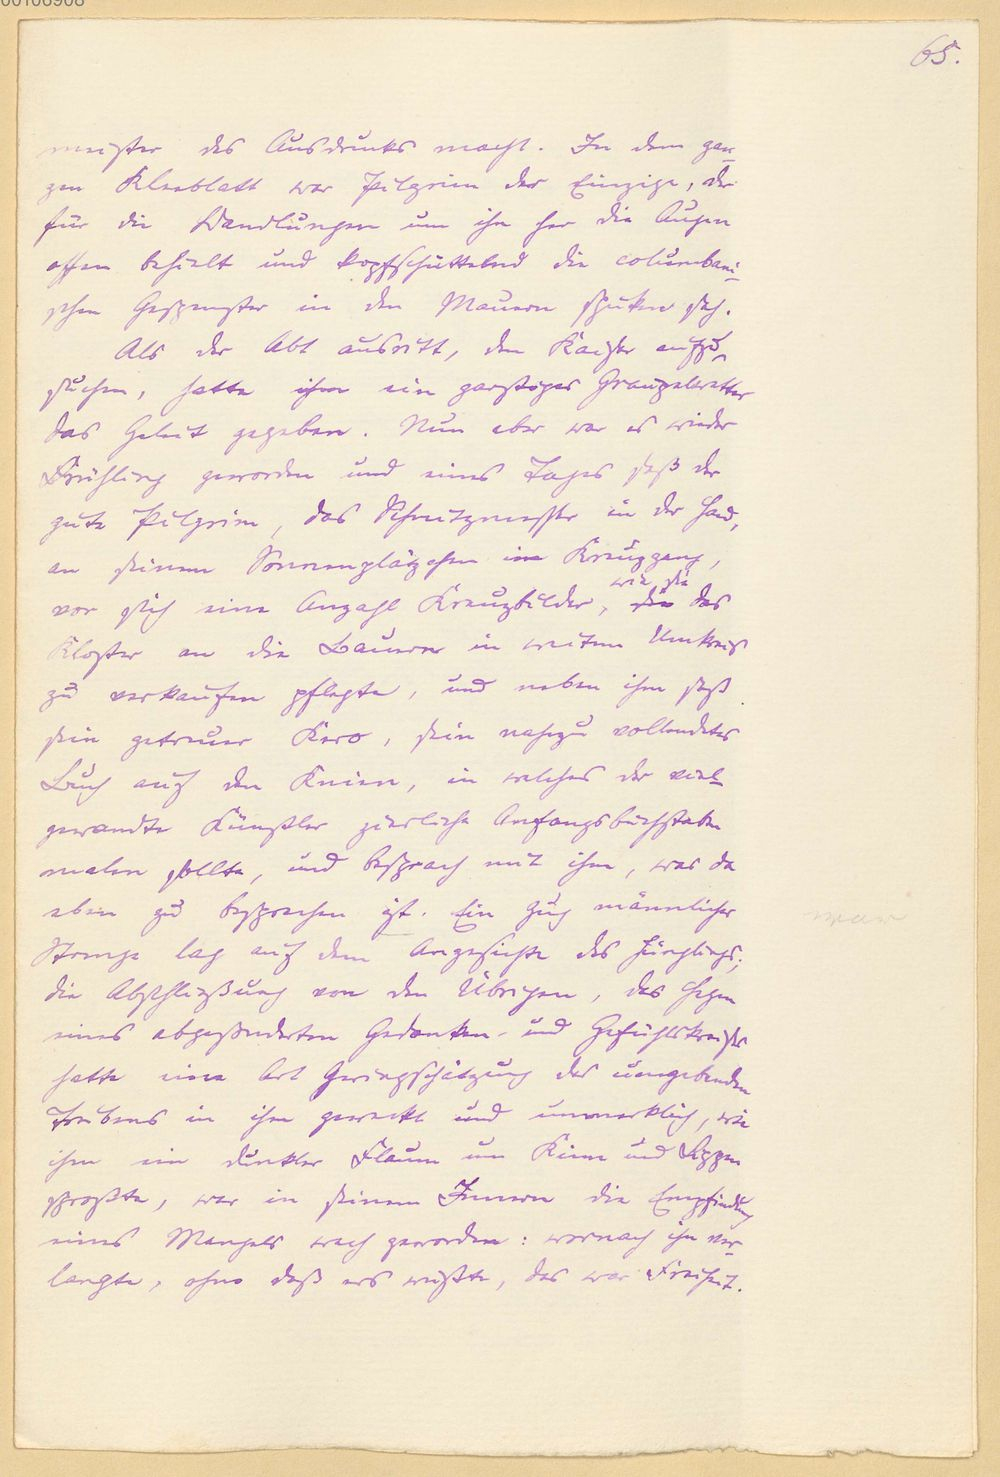 00106908
65.
meister des Ausdrucks macht. In dem gan-
zen Kleeblatt war Pilgrim der Einzige, der
für die Wandlungen um ihn her die Augen
offen behielt und kopfschüttelnd die columbani-
schen Gespenster in den Mauern spuken sah.
Als der Abt ausritt, den Kaiser aufzu-
suchen, hatte ihm ein garstiges Graupelwetter
das Geleit gegeben. Nun aber war es wieder
Frühling geworden und eines Tages saß der
gute Pilgrim, das Schnitzmesser in der Hand,
an seinem Sonnenplätzchen im Kreuzgang,
wie sie
vor sich eine Anzahl Kreuzbilder, die das
Kloster an die Bauern in weitem Umkreis
zu verkaufen pflegte, und neben ihm saß
sein getreuer Kero, sein nahezu vollendetes
Buch auf den Knien, in welches der viel-
gewandte Künstler zierliche Anfangsbuchstaben
malen sollte, und besprach mit ihm, was da
eben zu besprechen ist. Ein Zug männlicher
war
Strenge lag auf dem Angesichte des Jünglings;
die Abschließung von den Übrigen, das Hegen
eines abgesonderten Gedanken- und Gefühlskreises
hatte eine Art Geringschätzung des umgebenden
Treibens in ihm geweckt und unmerklich, wie
ihm ein dunkler Flaum um Kinn und Lippen
sproßte, war in seinem Innern die Empfindung
eines Mangels wach geworden: wornach ihn ver-
langte, ohne daß ers wußte, das war Freiheit.